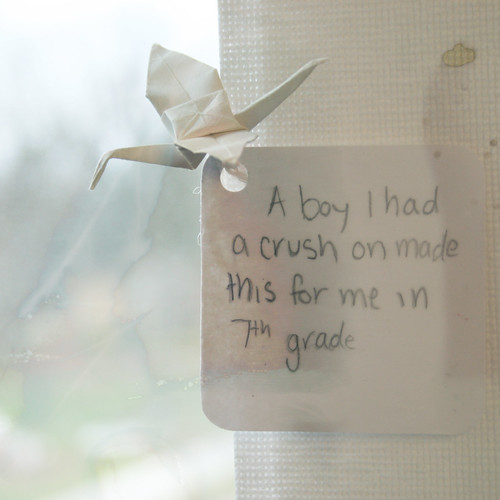 A boy I had
a crush on made
this for me in
7th grade